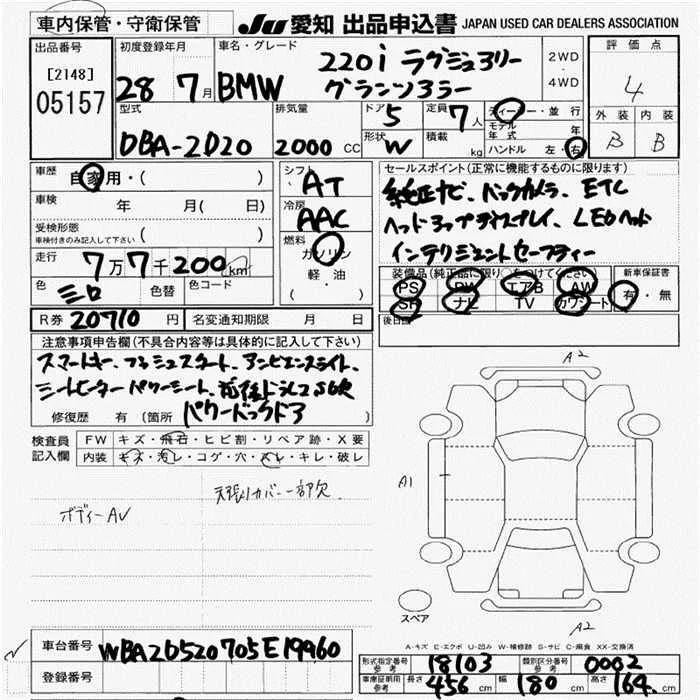 車内保管・守衛保管
JU 愛知 出品申込書 JAPAN USED CAR DEALERS ASSOCIATION
出品番号
[2148]
05157
初度登録年月
28 7月
車名・グレード
BMW 220i ラグジュアリー
グランツアラー
2WD
・
4WD
評価点
4
外装 内装
B B
型式
DBA-2D20
排気量
2000 CC
ドア 5
形状 W
定員 7人
積載 kg
ディーラー・並行
モデル年式 年
ハンドル 左・右
車歴 自家用・( )
車検 年 月( 日)
受検形態
車検付きのみ記入して下さい ( )
走行 7万7千200km
色 シロ 色替 色コード
シフト AT
冷房 AAC
燃料
ガソリン
軽・油
( )
セールスポイント(正常に機能するものに限ります)
純正ナビ、バックカメラ、ETC
ヘッドアップディスプレイ、LEDヘッド
インテリジェントセーフティー
装備品(純正品に限り)をつけてください
PS PW エアB AW
SR ナビ TV カワシート
新車保証書
有・無
後日品
R券 20710 円 名変通知期限 月 日
注意事項申告欄(不具合内容等は具体的に記入して下さい)
スマートキー、プッシュスタート、アンビエンスライト、
シートヒーター パワーシート、前後ドラレコ SDR
パワーバックドア
修復歴 有(箇所
検査員
記入欄
FW キズ・飛石・ヒビ割・リペア跡・X要
内装 キズ・汚レ・コゲ・穴・スレ・キレ・破レ
天張りカバー一部欠
ボディーAV
A2
A1
スペア
A2
A-キズ E-エクボ U-凹み W-補修跡 S-サビ C-腐食 XX-交換済
車台番号 WBA2D520705E19960
登録番号
形式指定番号
参考 18103
類別区分番号
参考 0002
車庫証明用
参考 長さ 456 cm 幅 180 cm 高さ 164 cm